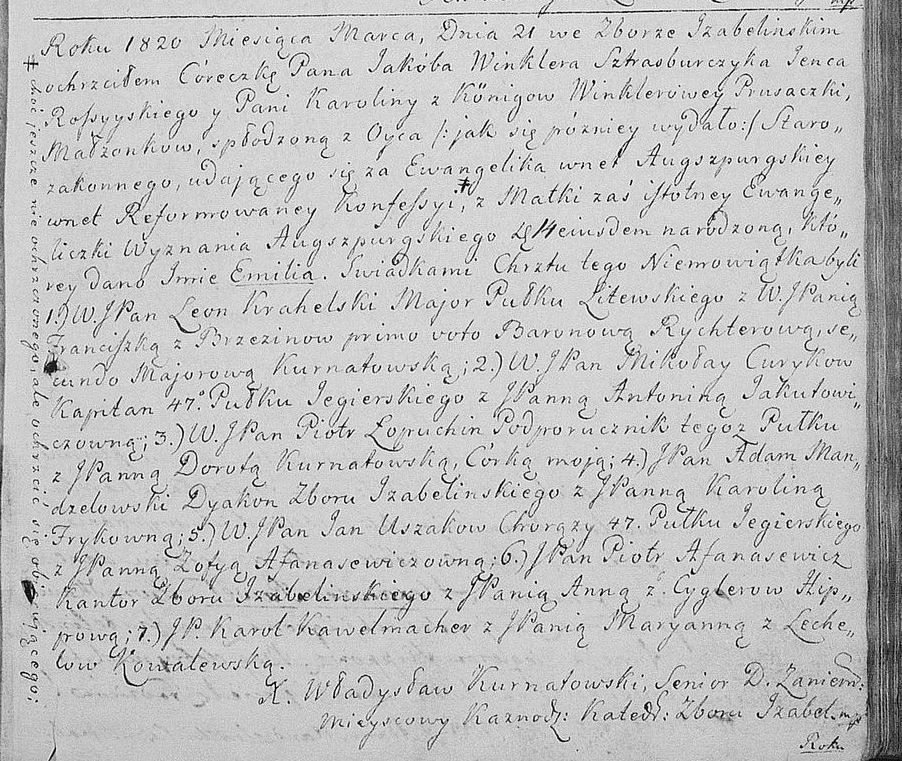 Roku 1820 Miesiąca Marca, Dnia 21 we Zborze Izabelinskim
ochrzciłem Córeczkę Pana Jakóba Winklera Sztrasburczyka Jenca
Rossyyskiego y Pani Karoliny z Königow Winklerowey Prusaczki,
Małżonkow, spłodzoną z Oyca /: jak się pózniey wydało :/ Staro„
zakonnego, udającego się za Ewangelika wnet Augszpurgskiey
wnet Reformowaney Konfessyi, ‡ z Matki zaś istotney Ewange„
liczki Wyznania Augszpurgskiego 14 eiusdem narodzoną, któ„
rey dano Imie Emilia. Swiadkami Chrztu tego Niemowiątka byli
1.) W. JPan Leon Krahelski Major Pułku Litewskiego z W. JPanią
Franciszką z Brzezinow primo voto Baronową Rychterową, se„
cundo Majorową Kurnatowską; 2.) W. JPan Mikołay Curykow
Kapitan 47º Pułku Jegierskiego z JPanną Antoniną Jakutowi„
czowną; 3.) W. JPan Piotr Łopuchin Podporucznik tegoż Pułku
z JPanną Dorotą Kurnatowską, Córką moją; 4.) JPan Adam Man„
dzelowski Dyakon Zboru Izabelinskiego z JPanną Karoliną
Frykowną; 5.) W. JPan Jan Uszakow Chorąży 47. Pułku Jegierskiego
z JPanną Zofyą Afanasewiczowną; 6.) JPan Piotr Afanasewicz
Kantor Zboru Izabelinskiego z JPanią Anną z Cyglerow Hip„
prową; 7.) JP. Karol Kawelmacher z JPanią Maryanną z Leche„
low Kowalewską.
X. Władysław Kurnatowski, Senior D. Zaniem:
Mieyscowy Kaznodz: Kated: Zboru Izabel. mp
Roku
‡ choć jeszcze nie ochrzczonego, ale ochrzcić się obiecującego;